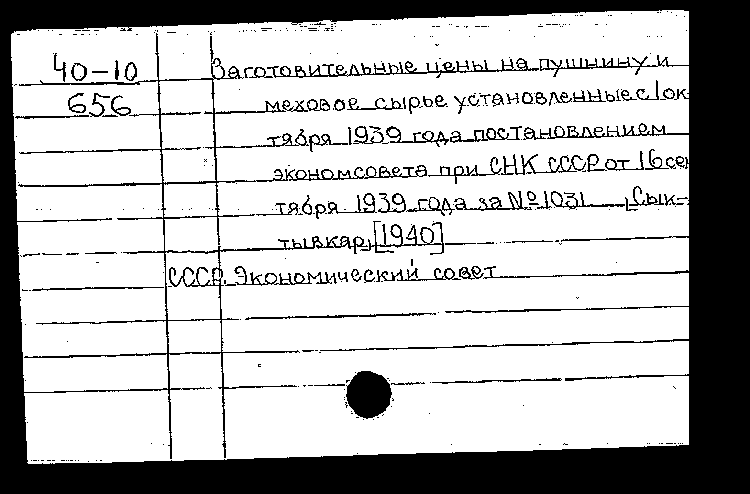 40-10
656
Заготовительные цены на пушнину и
меховое сырье установленные с 1 ок-
тября 1939 года постановлением
экономсовета при СНК СССР от 16 сен
тября 1939 года за № 1031 , Сык-
тывкар, [1940]
СССР. Экономический совет